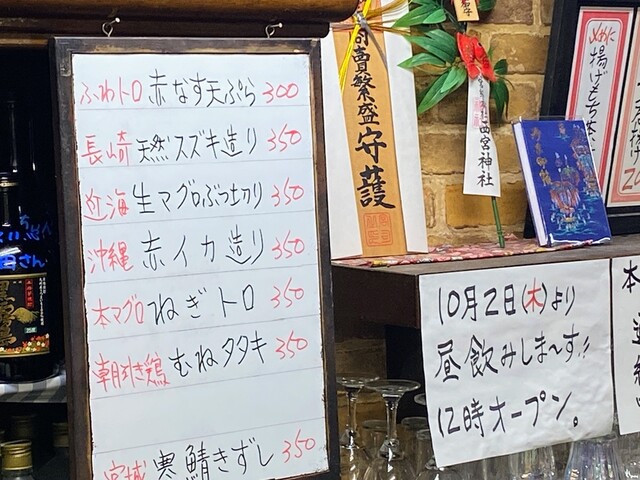 ふわトロ 赤なす天ぷら 300
長崎 天然スズキ造り 350
近海 生マグロぶつ切り 350
沖縄 赤イカ造り 350
本マグロ ねぎトロ 350
朝引き鶏 むねタタキ 350
宮城 寒鯖きずし 350
商売繁盛守護
西宮神社
10月2日(木)より
昼飲みしま〜す!!
12時オープン。
揚げもち